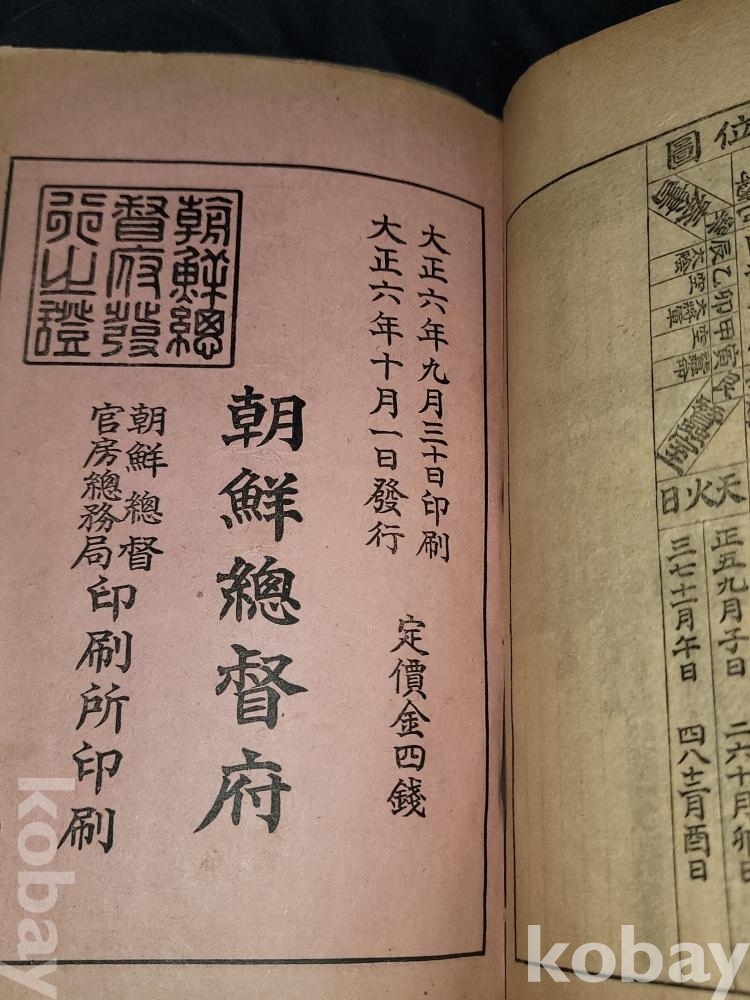 大正六年九月三十日印刷
大正六年十月一日發行
定價金四錢
朝鮮總督府
朝鮮總督
官房總務局
印刷所印刷
朝鮮總
督府發
行之證
位圖
辰乙卯甲寅
大將軍
天火日
正五九月子日 二六十月卯日
三七十一月午日 四八十二月酉日
kobay
kobay